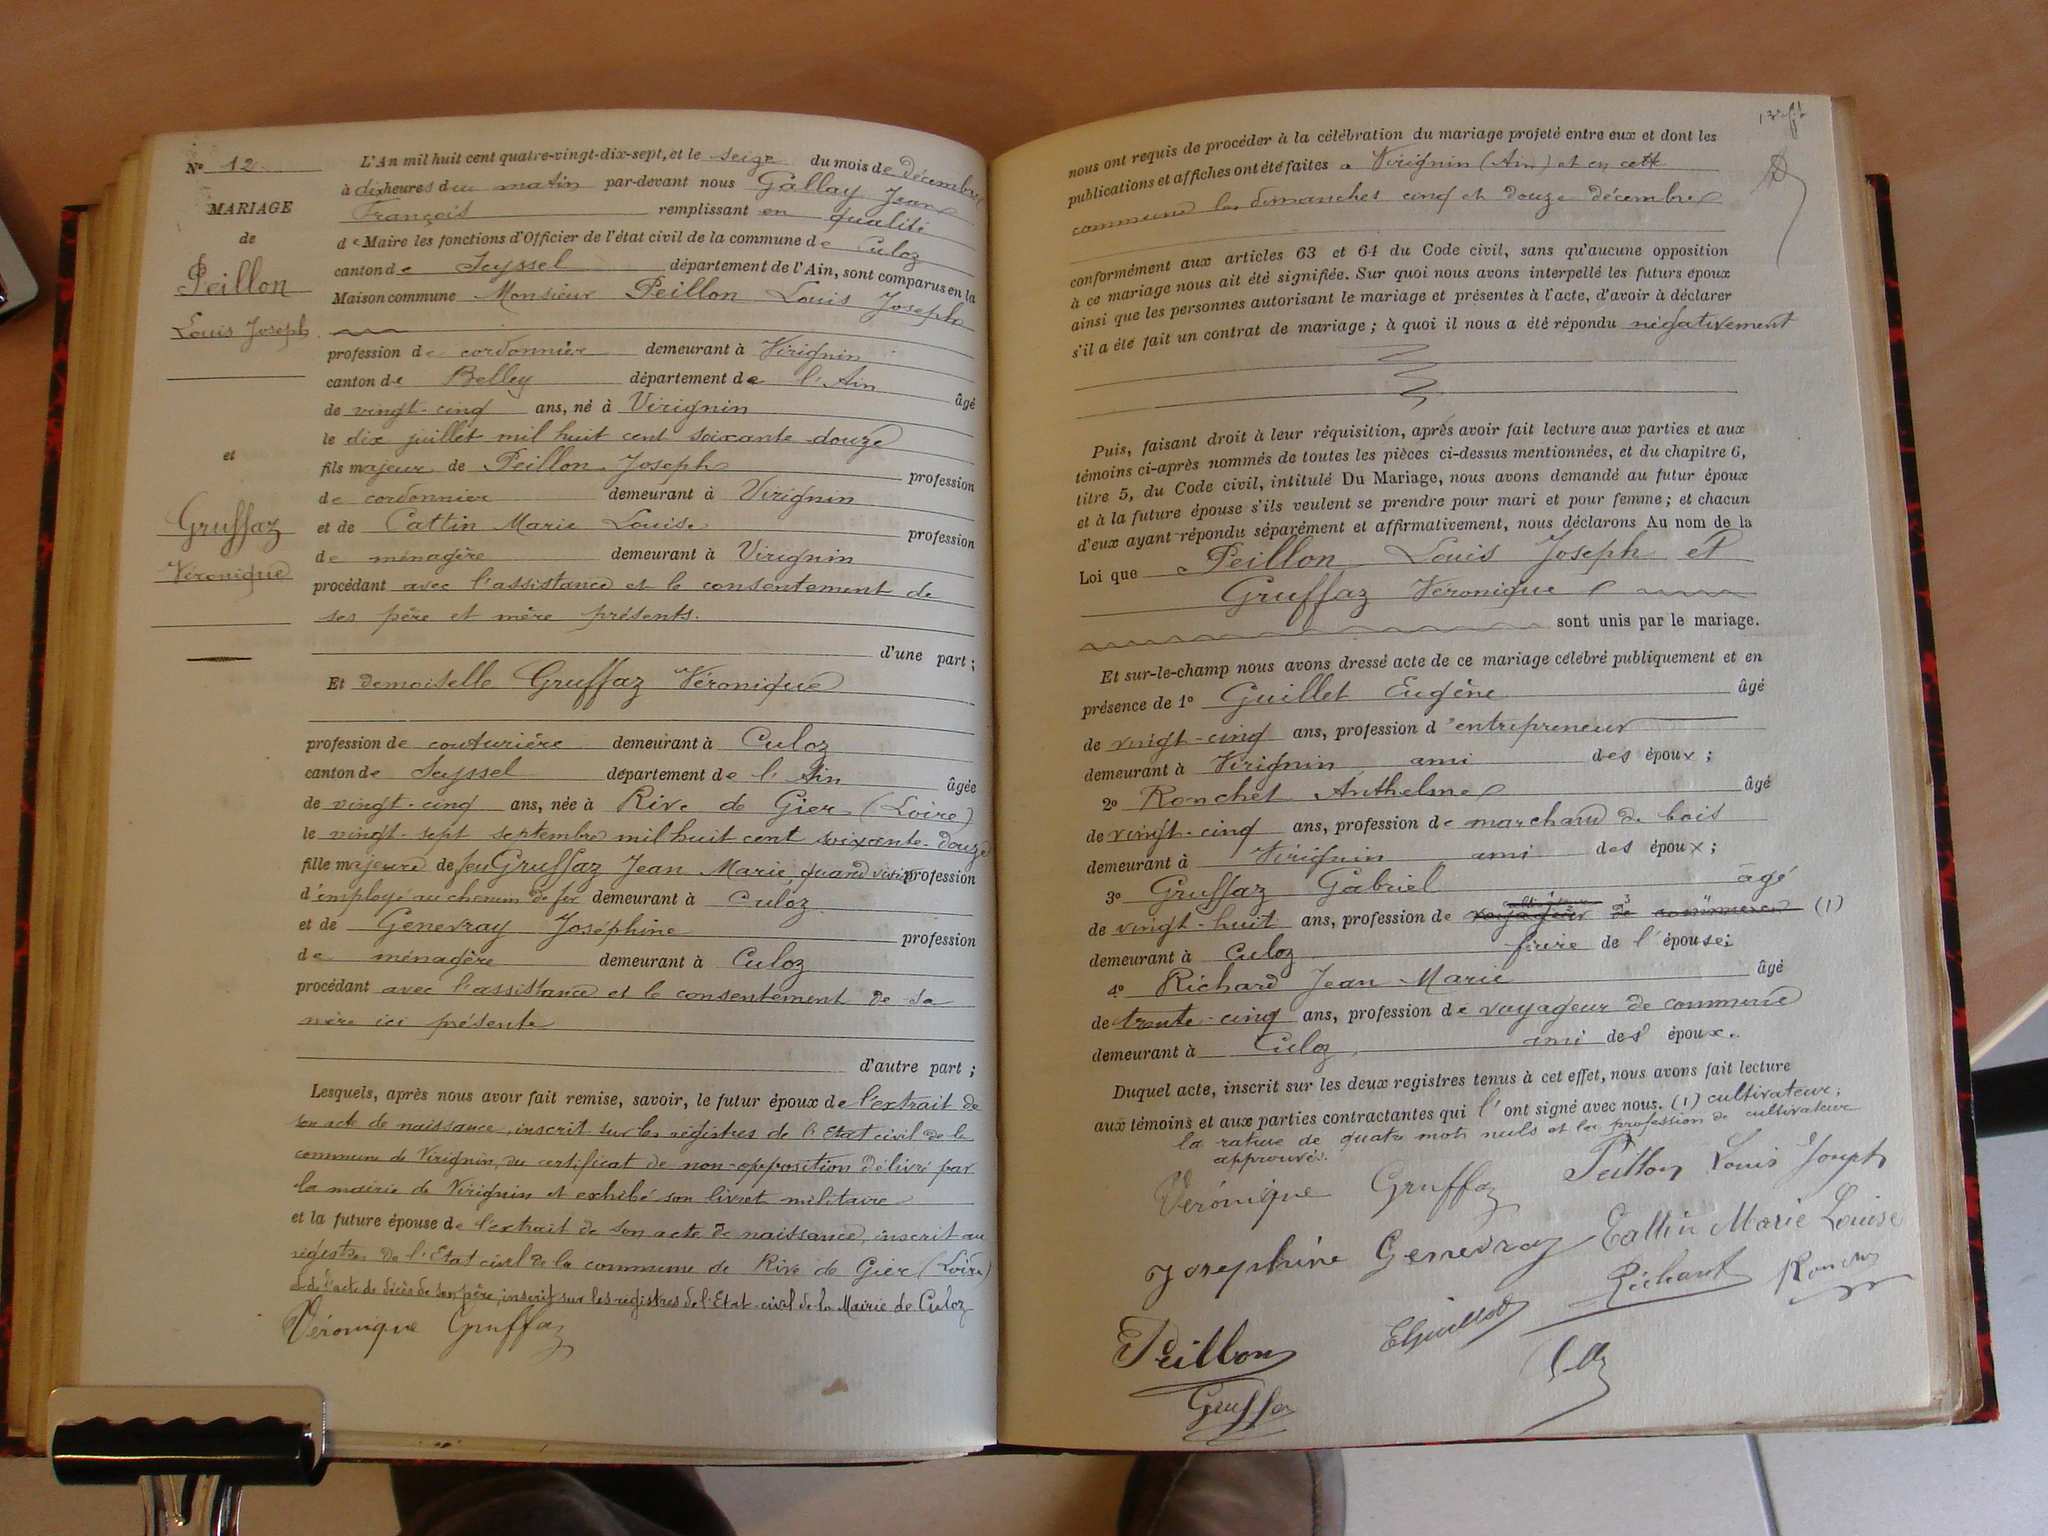 N° 12
MARIAGE
de
Peillon
Louis Joseph
et
Gruffaz
Véronique
L'An mil huit cent quatre-vingt-dix-sept, et le seize du mois de décembre
à dix heures du matin par-devant nous Gallay Jean
François remplissant en qualité
de Maire les fonctions d'Officier de l'état civil de la commune de Culoz
canton de Seyssel département de l'Ain, sont comparus en la
Maison commune Monsieur Peillon Louis Joseph
profession de cordonnier demeurant à Virignin
canton de Belley département de l'Ain âgé
de vingt-cinq ans, né à Virignin
le dix juillet mil huit cent soixante-douze
fils majeur de Peillon Joseph profession
de cordonnier demeurant à Virignin
et de Cattin Marie Louise profession
de ménagère demeurant à Virignin
procédant avec l'assistance et le consentement de
ses père et mère présents.
d'une part ;
Et demoiselle Gruffaz Véronique
profession de couturière demeurant à Culoz
canton de Seyssel département de l'Ain âgée
de vingt-cinq ans, née à Rive de Gier (Loire)
le vingt-sept septembre mil huit cent soixante-douze
fille majeure de feu Gruffaz Jean Marie, quand vivait profession
d'employé au chemin de fer demeurant à Culoz
et de Genevray Joséphine profession
de ménagère demeurant à Culoz
procédant avec l'assistance et le consentement de sa
mère ici présente
d'autre part ;
Lesquels, après nous avoir fait remise, savoir, le futur époux de l'extrait de
son acte de naissance, inscrit sur les registres de l'Etat civil de la
commune de Virignin, du certificat de non-opposition délivré par
la mairie de Virignin et exhibé son livret militaire
et la future épouse de l'extrait de son acte de naissance, inscrit au
registre de l'Etat civil de la commune de Rive de Gier (Loire)
et de l'acte de décès de son père, inscrit sur les registres de l'Etat-civil de la Mairie de Culoz
Véronique Gruffaz
nous ont requis de procéder à la célébration du mariage projeté entre eux et dont les
publications et affiches ont été faites à Virignin (Ain) et en cette
commune les dimanches cinq et douze décembre
conformément aux articles 63 et 64 du Code civil, sans qu'aucune opposition
à ce mariage nous ait été signifiée. Sur quoi nous avons interpellé les futurs époux
ainsi que les personnes autorisant le mariage et présentes à l'acte, d'avoir à déclarer
s'il a été fait un contrat de mariage ; à quoi il nous a été répondu négativement
Puis, faisant droit à leur réquisition, après avoir fait lecture aux parties et aux
témoins ci-après nommés de toutes les pièces ci-dessus mentionnées, et du chapitre 6,
titre 5, du Code civil, intitulé Du Mariage, nous avons demandé au futur époux
et à la future épouse s'ils veulent se prendre pour mari et pour femme ; et chacun
d'eux ayant répondu séparément et affirmativement, nous déclarons Au nom de la
Loi que Peillon Louis Joseph et
Gruffaz Véronique
sont unis par le mariage.
Et sur-le-champ nous avons dressé acte de ce mariage célébré publiquement et en
présence de 1° Guillet Eugène âgé
de vingt-cinq ans, profession d'entrepreneur
demeurant à Virignin ami des époux ;
2° Ronchet Anthelme âgé
de vingt-cinq ans, profession de marchand de bois
demeurant à Virignin ami des époux ;
3° Gruffaz Gabriel âgé
de vingt-huit ans, profession de voyageur de commerce (1)
demeurant à Culoz frère de l'épouse ;
4° Richard Jean-Marie âgé
de trente-cinq ans, profession de voyageur de commerce
demeurant à Culoz ami des époux.
Duquel acte, inscrit sur les deux registres tenus à cet effet, nous avons fait lecture
aux témoins et aux parties contractantes qui l'ont signé avec nous. (1) cultivateur ;
la rature de quatre mots nuls et la profession de cultivateur
approuvés.
Véronique Gruffaz Peillon Louis Joseph
Josephine Genevray Cattin Marie Louise
Richard
Peillon EGuillet
Gruffaz